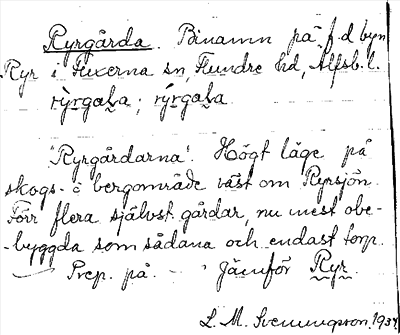 Ryrgårda. Binamn på f.d byn
Ryr i Fuxerna sn, Flundre hd, Älfsb. l.
rỳrgaḷa; rýrgaḷa
"Ryrgårdarna". Högt läge på
skogs- o bergområde väst om Ryrsjön.
Förr flera självst. gårdar, nu mest obe-
-byggda som sådana och endast torp.
— Prep. på. — Jämför Ryr.
L. M. Svenungsson. 1937.